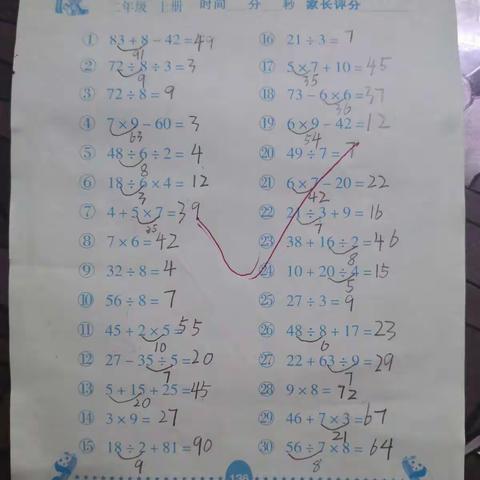 二年级 上册 时间 分 秒 家长评分
① 83+8-42=49
91
② 72÷8÷3=3
9
③ 72÷8=9
④ 7×9-60=3
63
⑤ 48÷6÷2=4
8
⑥ 18÷6×4=12
3
⑦ 4+5×7=39
35
⑧ 7×6=42
⑨ 32÷8=4
⑩ 56÷8=7
⑪ 45+2×5=55
10
⑫ 27-35÷5=20
7
⑬ 5+15+25=45
20
⑭ 3×9=27
⑮ 18÷2+81=90
9
⑯ 21÷3=7
⑰ 5×7+10=45
35
⑱ 73-6×6=37
36
⑲ 6×9-42=12
54
⑳ 49÷7=7
㉑ 6×7-20=22
42
㉒ 21÷3+9=16
7
㉓ 38+16÷2=46
8
㉔ 10+20÷4=15
5
㉕ 27÷3=9
㉖ 48÷8+17=23
6
㉗ 22+63÷9=29
7
㉘ 9×8=72
㉙ 46+7×3=67
21
㉚ 56÷7×8=64
8
136